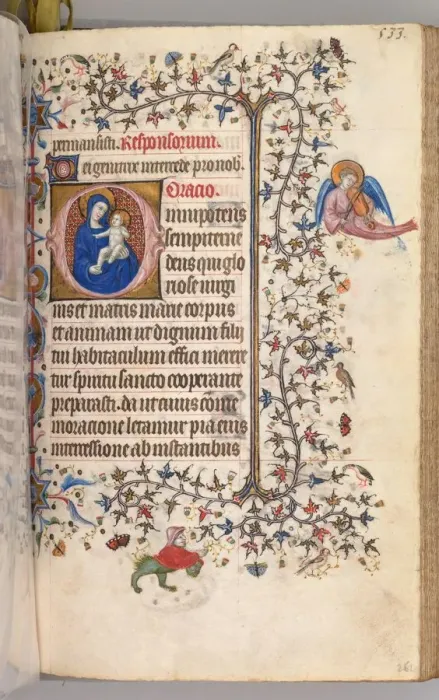 533.
permansisti. Responsorium.
Dei genitrix intercede pro nob.
Oracio.
Omnipotens
sempiterne
deus qui glo
riose virgi
nis et matris marie corpus
et animam ut dignum filij
tui habitaculum effici merere
tur spiritu sancto cooperante
preparasti. da ut cuius com̄e
moracione letamur pia eius
intercessione ab instantibus